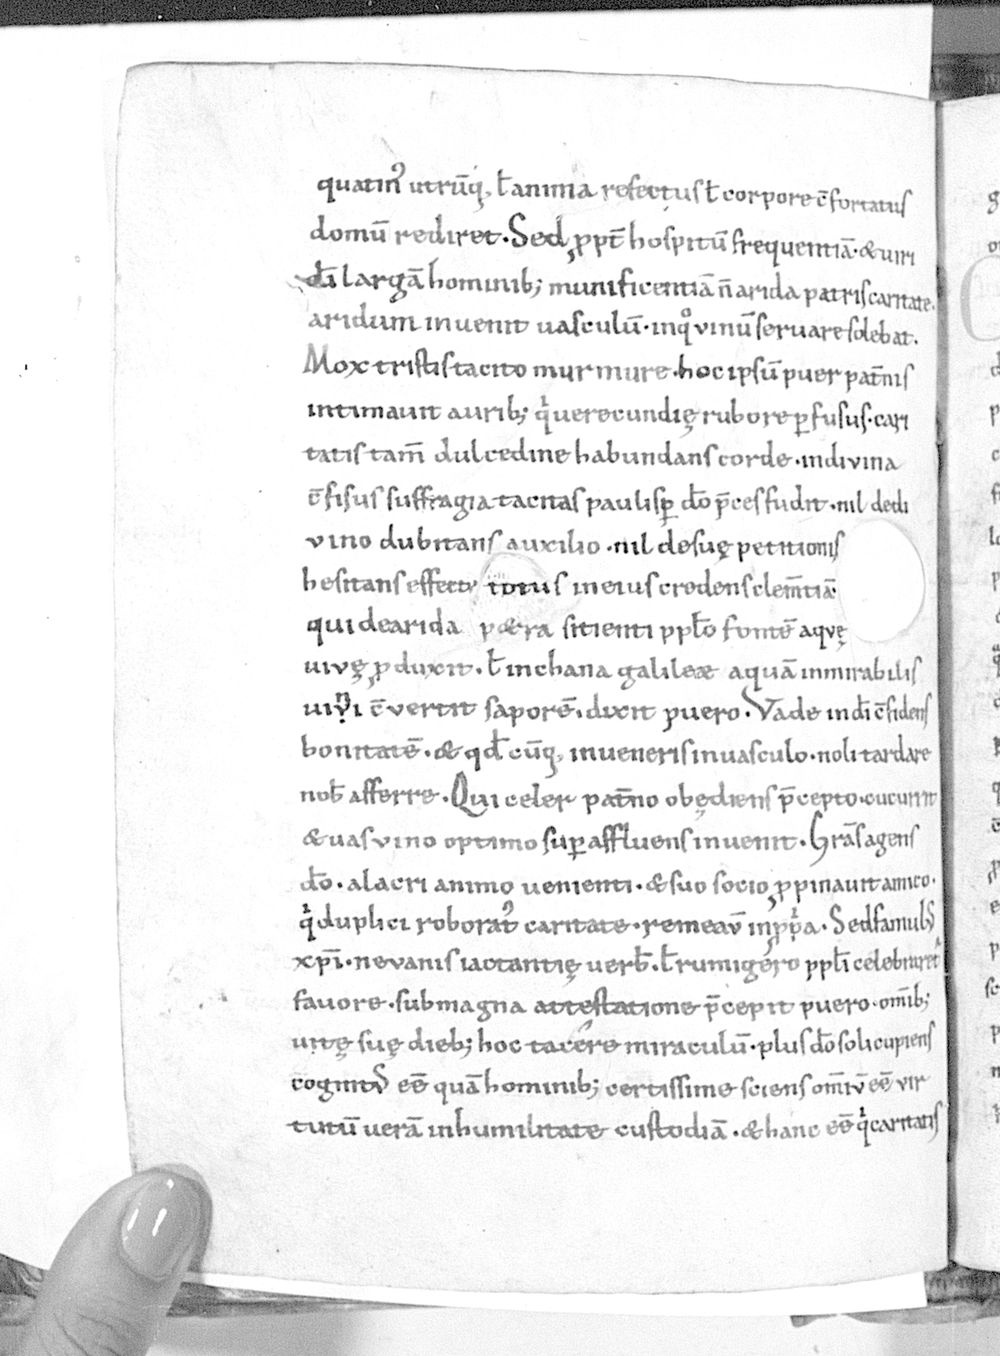 quatin᾽ utrūq, ł anima refectus ł corpore c̄fortatus
domū rediret. Sed ꝓpt̄ hospitū frequentiā. & uiri
dī largā hominib; munificentiā n̄ arida patris caritate.
aridum inuenit uasculū. inqͦ uinū seruare solebat.
Mox tristis tacito murmure. hoc ipsū puer pat̄nis
intimauit aurib; qͥ uerecundię rubore ꝑfusus. cari
tatis tam̄ dulcedine habundans corde. in divina
c̄fisus suffragia tacitas paulisꝑ dō p̄ces fudit. nil de di
vino dubitans auxilio. nil de suę petitionis
hesitans effectu totus in eius credens clem̄tiā.
qui de arida p&ra sitienti pplō fontē aquę
uiuę ꝓduxit. ł in chana galileæ aquā in mirabilis
uini c̄vertit saporē. dixit puero. Vade in dī c̄fidens
bonitatē. & qd cūq, inueneris in uasculo. noli tardare
nob̄ afferre. Qui celer pat̄no obędiens p̄cepto. cucurrit
& uas vino optimo suꝑaffluens inuenit. Grās agens
dō. alacri animo uenienti. & suo socio ꝓpinauit amico.
qͥ duplici roborat᾽ caritate. remeav̄ in ꝓpͥa. Sed famulꝰ
xpī. ne vanis iactantię uerb̄. ł rumigero pplī celebraret᾽
fauore. sub magna attestatione p̄cepit puero. om̄ib;
uitę suę dieb; hoc tacere miraculū. plus dō soli cupiens
cognitꝰ eē quā hominib; certissime sciens om̄iū eē vir
tutū uerā in humilitate custodiā. & hanc eē qͥ caritatis